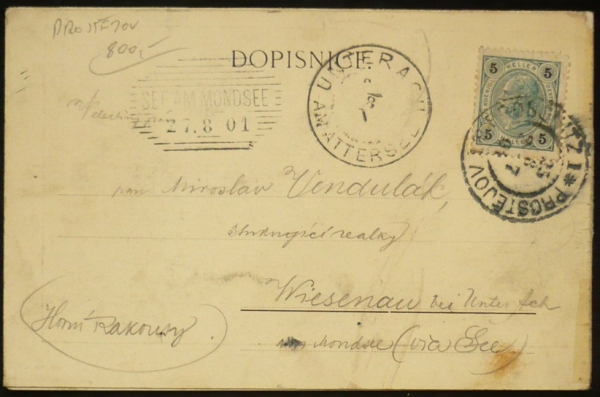 PROSTĚJOV
800,-
DOPISNICE.
5 HELLER 5
5 5
UNTERACH
AM ATTERSEE
SEE AM MONDSEE
27.8 01
PROSTĚJOV
pan Miroslav Vendulák,
realky
Wiesenau bei Unter Ach
Horní Rakousy.
Mondsee (via See)